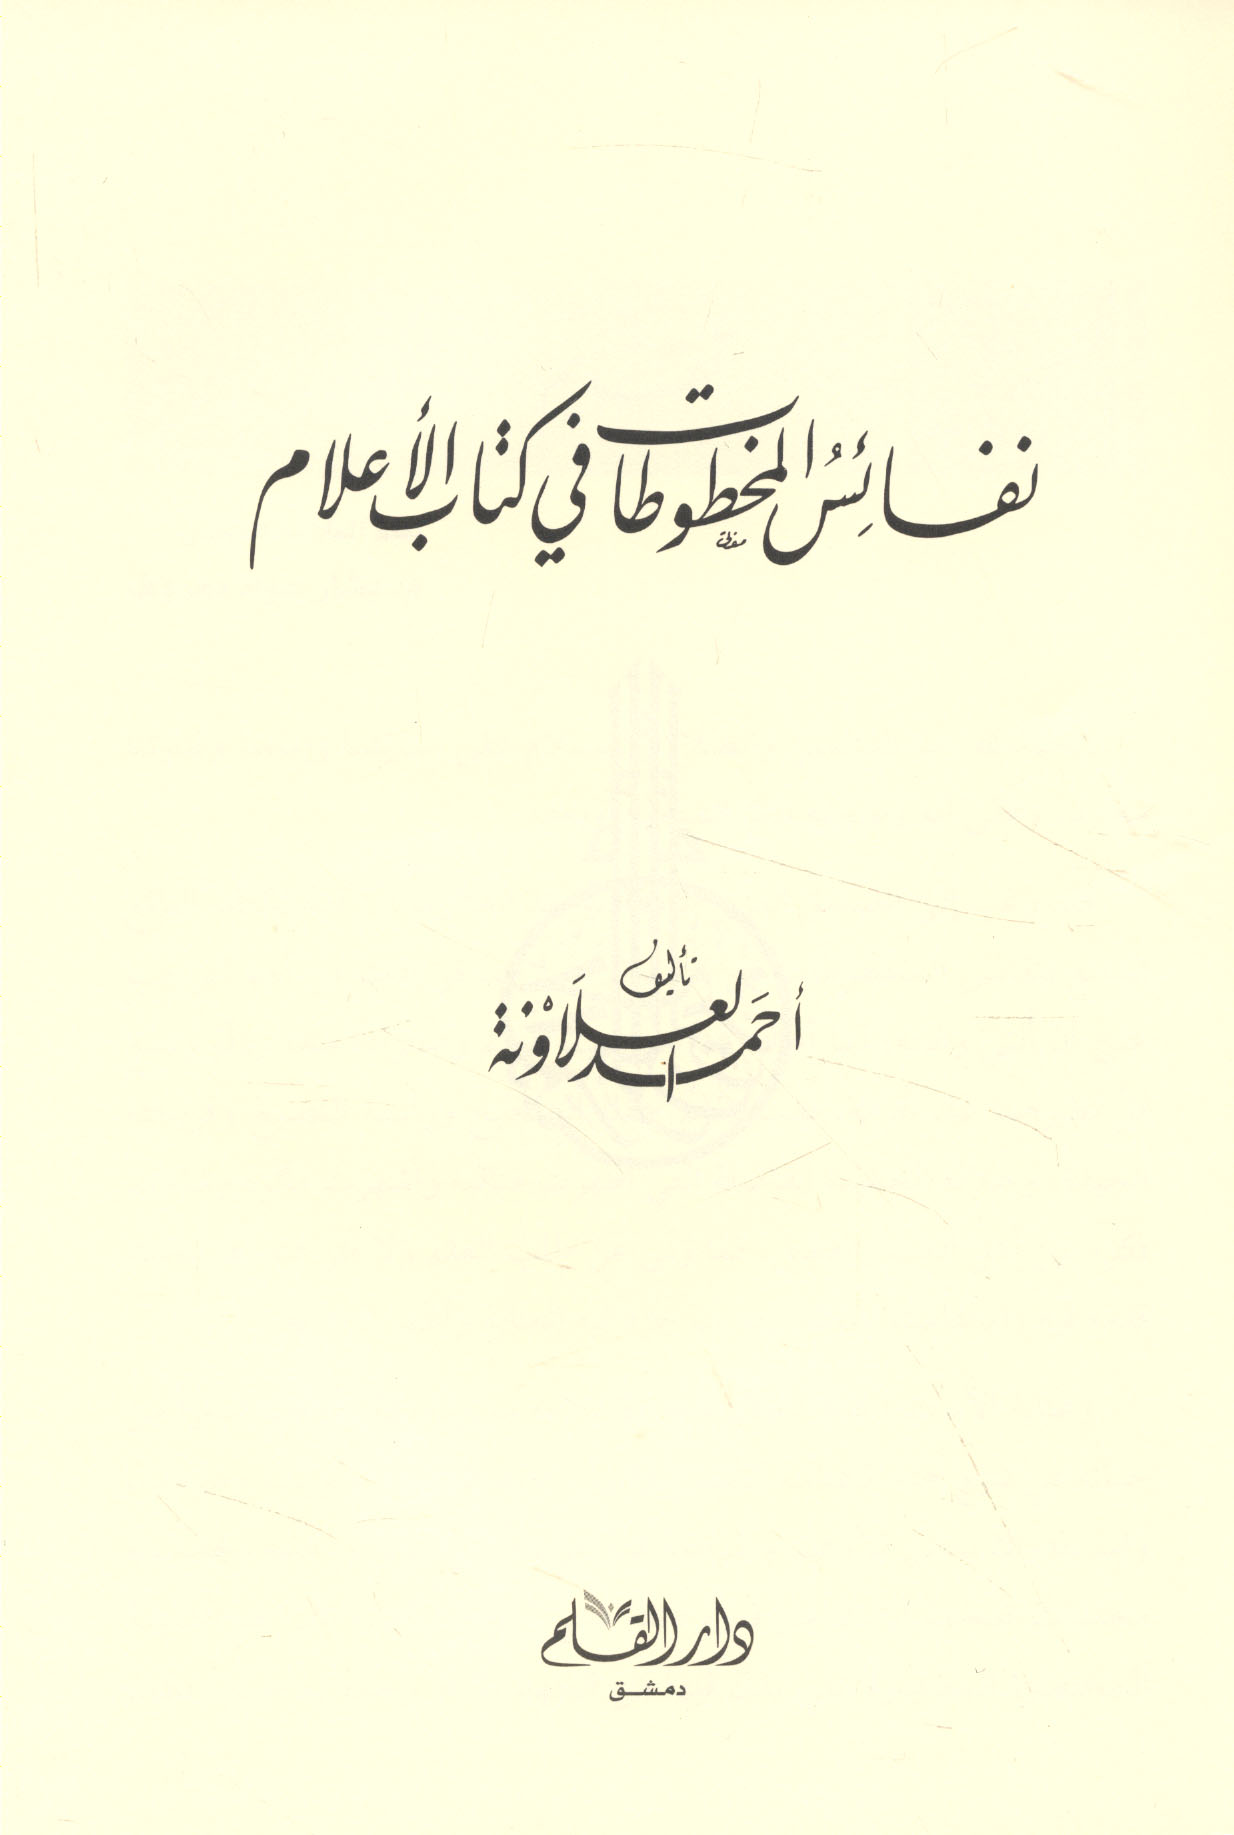 نفائسُ المخطوطات في كتاب الأعلام
تأليف
أحمد العلاونة
دار القلم
دمشق